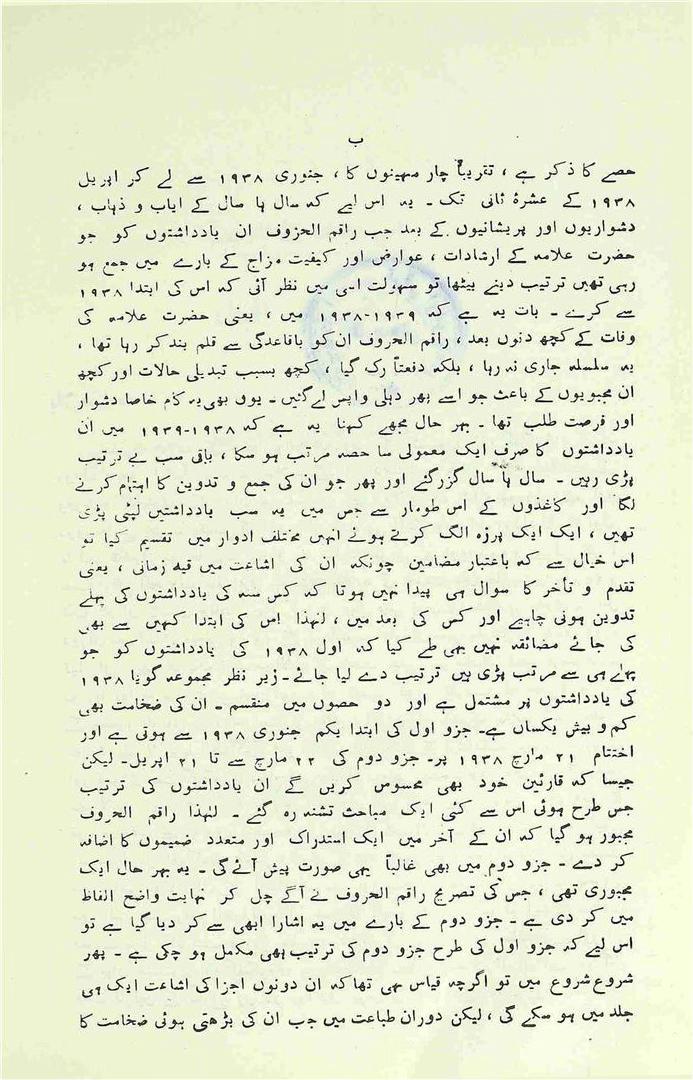 ب
حصے کا ذکر ہے ، تقریباً چار مہینوں کا ، جنوری ۱۹۳۸ سے لے کر اپریل
۱۹۳۸ کے عشرۂ ثانی تک ۔ یہ اس لیے کہ سال ہا سال کے ایاب و ذہاب ،
دشواریوں اور پریشانیوں کے بعد جب راقم الحروف ان یادداشتوں کو جو
حضرت علامہ کے ارشادات ، عوارض اور کیفیت مزاج کے بارے میں جمع ہو
رہی تھیں ترتیب دینے بیٹھا تو سہولت اسی میں نظر آئی کہ اس کی ابتدا ۱۹۳۸
سے کرے ۔ بات یہ ہے کہ ۱۹۳۹-۱۹۳۸ میں ، یعنی حضرت علامہ کی
وفات کے کچھ دنوں بعد ، راقم الحروف ان کو باقاعدگی سے قلم بند کر رہا تھا ،
یہ سلسلہ جاری نہ رہا ، بلکہ دفعتاً رک گیا ، کچھ بسبب تبدیلی حالات اور کچھ
ان مجبویوں کے باعث جو اسے پھر دہلی واپس لے گئیں ۔ یوں بھی یہ کام خاصا دشوار
اور فرصت طلب تھا ۔ بہر حال مجھے کہنا یہ ہے کہ ۱۹۳۸-۱۹۳۹ میں ان
یادداشتوں کا صرف ایک معمولی سا حصہ مرتب ہو سکا ، باقی سب بے ترتیب
پڑی رہیں ۔ سال ہا سال گزر گئے اور پھر جو ان کی جمع و تدوین کا اہتمام کرنے
لگا اور کاغذوں کے اس طومار سے جس میں یہ سب یادداشتیں لپٹی پڑی
تھیں ، ایک ایک پرزہ الگ کرتے ہوئے انہیں مختلف ادوار میں تقسیم کیا تو
اس خیال سے کہ باعتبار مضامین چونکہ ان کی اشاعت میں قید زمانی ، یعنی
تقدم و تأخر کا سوال ہی پیدا نہیں ہوتا کہ کس سنہ کی یادداشتوں کی پہلے
تدوین ہونی چاہیے اور کس کی بعد میں ، لہٰذا اس کی ابتدا کہیں سے بھی
کی جائے مضائقہ نہیں یہی طے کیا کہ اول ۱۹۳۸ کی یادداشتوں کو جو
پہلے ہی سے مرتب پڑی ہیں ترتیب دے لیا جائے ۔ زیر نظر مجموعہ گویا ۱۹۳۸
کی یادداشتوں پر مشتمل ہے اور دو حصوں میں منقسم ۔ ان کی ضخامت بھی
کم و بیش یکساں ہے۔ جزو اول کی ابتدا یکم جنوری ۱۹۳۸ سے ہوتی ہے اور
اختتام ۲۱ مارچ ۱۹۳۸ پر۔ جزو دوم کی ۲۲ مارچ سے تا ۲۱ اپریل۔ لیکن
جیسا کہ قارئین خود بھی محسوس کریں گے ان یادداشتوں کی ترتیب
جس طرح ہوئی اس سے کئی ایک مباحث تشنہ رہ گئے ۔ لہٰذا راقم الحروف
مجبور ہو گیا کہ ان کے آخر میں ایک استدراک اور متعدد ضمیموں کا اضافہ
کر دے ۔ جزو دوم میں بھی غالباً یہی صورت پیش آئے گی ۔ یہ بہر حال ایک
مجبوری تھی ، جس کی تصریح راقم الحروف نے آگے چل کر نہایت واضح الفاظ
میں کر دی ہے ۔ جزو دوم کے بارے میں یہ اشارا ابھی سے کر دیا گیا ہے تو
اس لیے کہ جزو اول کی طرح جزو دوم کی ترتیب بھی مکمل ہو چکی ہے ۔ پھر
شروع شروع میں تو اگرچہ قیاس یہی تھا کہ ان دونوں اجزا کی اشاعت ایک ہی
جلد میں ہو سکے گی ، لیکن دوران طباعت میں جب ان کی بڑھتی ہوئی ضخامت کا